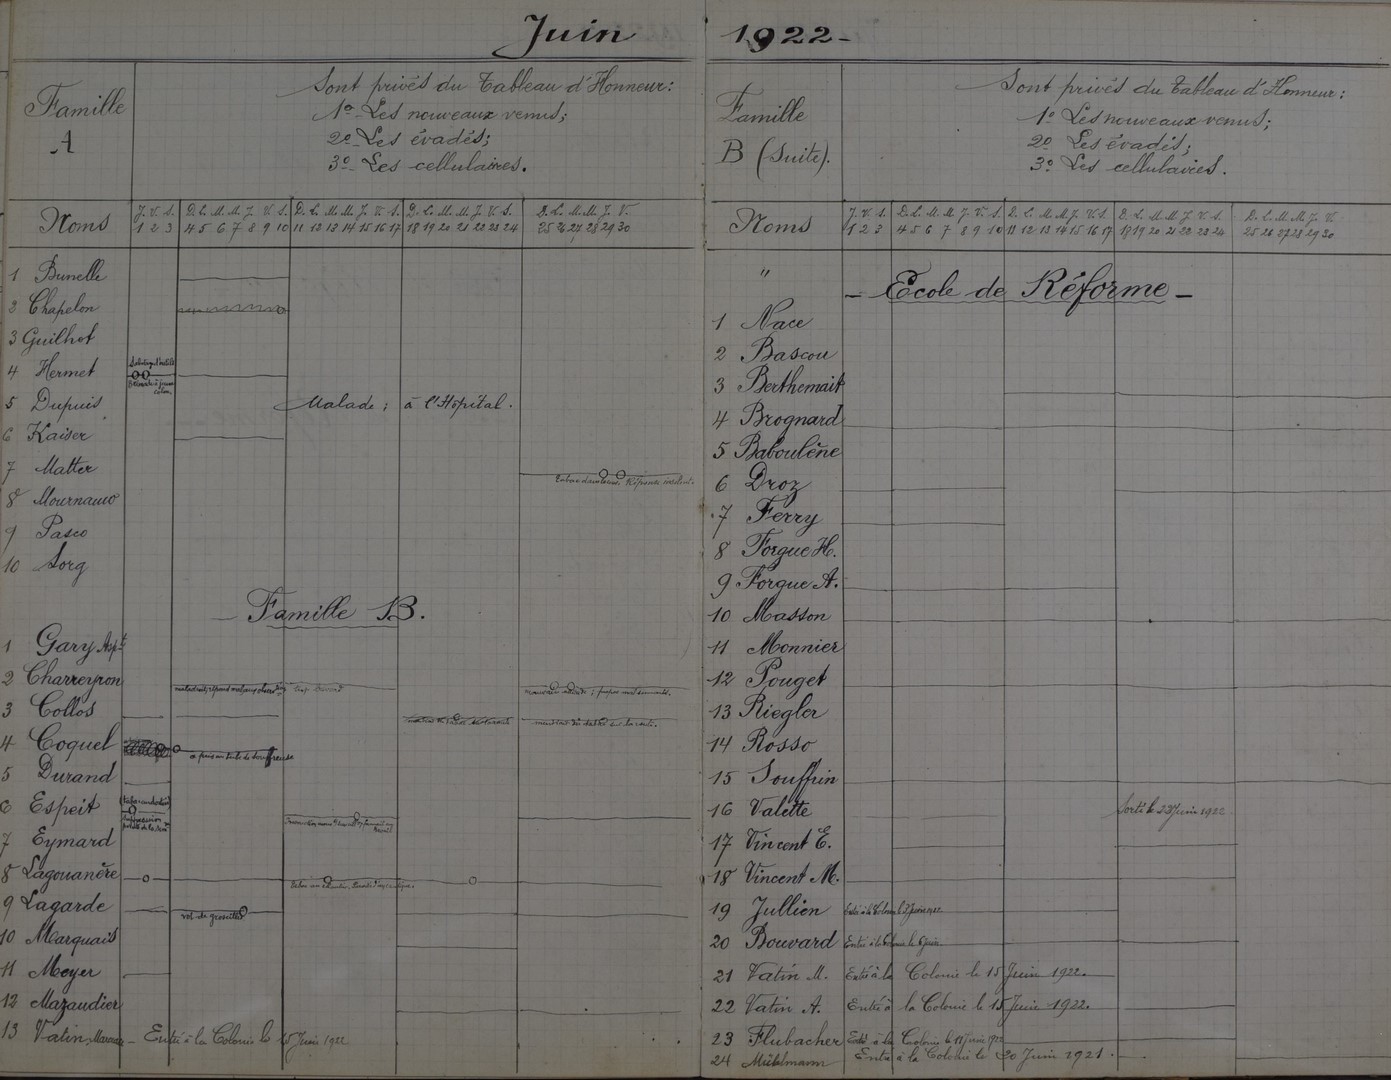 Juin
Famille
A
Sont privés du Tableau d'Honneur:
1º Les nouveaux venus;
2º Les évadés;
3º Les cellulaires.
Noms
J. V. S. D. L. M. M. J. V. S. D. L. M. M. J. V. S. D. L. M. M. J. V. S. D. L. M. M. J. V.
1 2 3 4 5 6 7 8 9 10 11 12 13 14 15 16 17 18 19 20 21 22 23 24 25 26 27 28 29 30
1 Bunelle
2 Chapelon
3 Guilhot
4 Hermet
5 Dupuis Malade; à l'Hôpital.
6 Kaiser
7 Matter
8 Mournaud
9 Pasco
10 Sorg
Famille B.
1 Gary
2 Charreyron
3 Collos
4 Coquel
5 Durand
6 Espeit
7 Eymard
8 Lagouanère
9 Lagarde vol de groseilles
10 Marquais
11 Meyer
12 Mazaudier
13 Vatin - Entré à la Colonie le 15 Juin 1922
1922-
Famille
B (Suite).
Sont privés du Tableau d'Honneur:
1º Les nouveaux venus;
2º Les évadés;
3º Les cellulaires.
Noms
J. V. S. D. L. M. M. J. V. S. D. L. M. M. J. V. S. D. L. M. M. J. V. S. D. L. M. M. J. V.
1 2 3 4 5 6 7 8 9 10 11 12 13 14 15 16 17 18 19 20 21 22 23 24 25 26 27 28 29 30
" - Ecole de Réforme -
1 Nace
2 Bascou
3 Berthemait
4 Brognard
5 Baboulène
6 Droz
7 Ferry
8 Forgue H.
9 Forgue A.
10 Masson
11 Monnier
12 Pouget
13 Riegler
14 Rosso
15 Souffrin
16 Valette Sorti le 23 Juin 1922
17 Vincent E.
18 Vincent M.
19 Jullien Entré à la Colonie le
20 Bouvard Entré à la Colonie le 6 juin
21 Vatin M. Entré à la Colonie le 15 Juin 1922.
22 Vatin A. Entré à la Colonie le 15 Juin 1922.
23 Flubacher Entré à la Colonie le 11 Juin 1922
24 Entré à la Colonie le 20 Juin 1921.